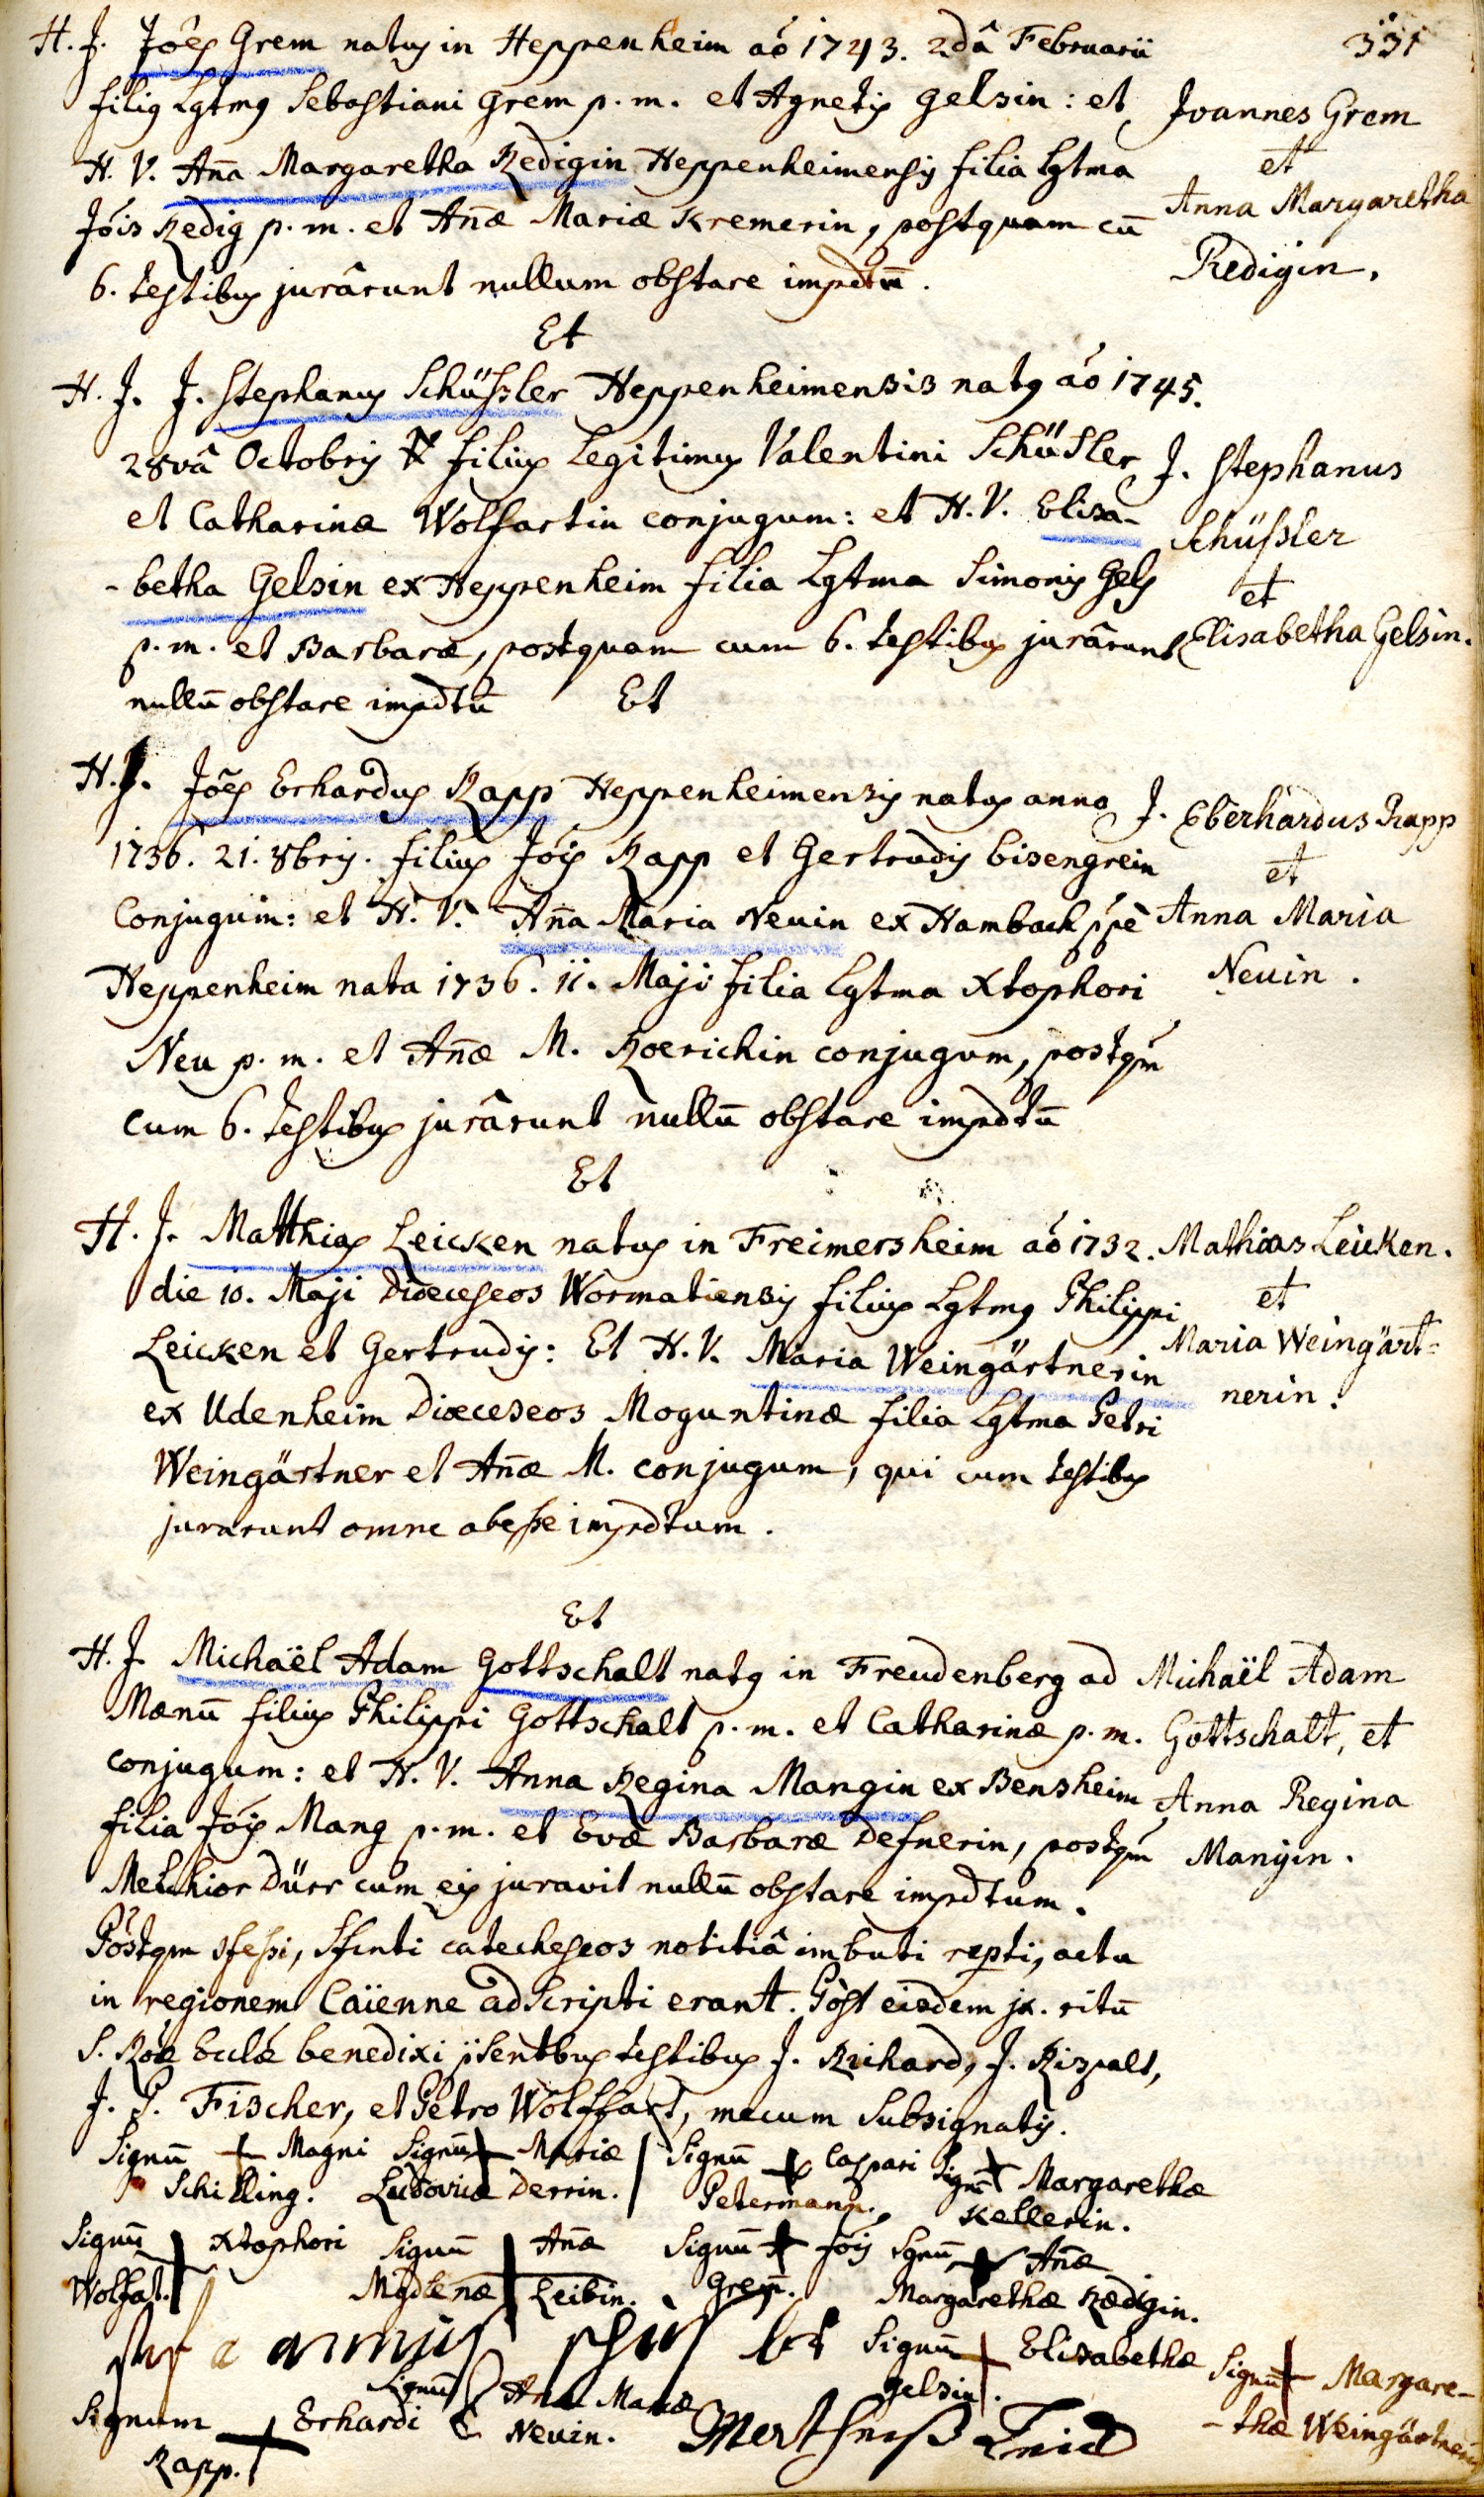 331
H. J. Jões Grem natus in Heppenheim aó 1743. 2dâ Februarii
filius Lgtmus Sebastiani Grem p. m. et Agnetis Gelsin: et
H. V. Anña Margaretha Redigin Heppenheimensis filia Lgtma
Jóis Redig p. m. et Añæ Mariæ Kremerin, postquam cū
6. testibus jurârunt nullum obstare impdtū.
Joannes Grem
et
Anna Margaretha
Redigin.
Et
H. J. J. Stephanus Schüssler Heppenheimensis natus aó 1745.
28vâ Octobris filius Legitimus Valentini Schüsler
et Catharinæ Wolfartin conjugum: et H. V. Elisa-
-betha Gelsin ex Heppenheim filia Lgtma Simonis Gels
p. m. et Barbaræ, postquam cum 6. testibus jurârunt
nullū obstare impdtū
J. Stephanus
Schüssler
et
Elisabetha Gelsin.
Et
H. J. Jões Erhardus Rapp Heppenheimensis natus anno
1736. 21. 8bris. filius Jóis Rapp et Gertrudis Eisengrein
Conjugum: et H. V. Aña Maria Neuin ex Hambach ppè
Heppenheim nata 1736. 11. Maji filia Lgtma Xtophori
Neu p. m. et Añæ M. Roerichin conjugum, postqm
cum 6. testibus jurârunt nullū obstare impdtū
J. Eberhardus Rapp
et
Anna Maria
Neuin.
Et
H. J. Matthias Leicken natus in Freimersheim aó 1732.
die 10. Maji Dioeceseos Wormatiensis filius Lgtmus Philippi
Leicken et Gertrudis: Et H. V. Maria Weingärtnerin
ex Udenheim Dioeceseos Moguntinæ filia Lgtma Petri
Weingärtner et Añæ M. conjugum, qui cum testibus
jurarunt omne abesse impdtum.
Mathias Leicken.
et
Maria Weingärt-
nerin.
Et
H. J. Michaël Adam Gottschalt natus in Freudenberg ad
Mænū filius Philippi Gottschalt p. m. et Catharinæ p. m.
conjugum: et H. V. Anna Regina Mangin ex Bensheim
filia Jóis Mang p. m. et Evæ Barbaræ Defnerin, postqm
Melchior Dürr cum eis juravit nullū obstare impdtum.
Michaël Adam
Gottschalt, et
Anna Regina
Mangin.
Postqm sfessi, catecheseos notitiâ imbuti repti, actu
in regionem Caïenne adscripti erant. Pòst eisdem jx. ritū
S. Róæ Eclæ benedixi testibus J. Richard, J. Rispalt,
J. P. Fischer, et Petro Wolffart, mecum subsignatis.
Signū + Magni Signū + Mariæ Signū + Caspari Signū + Margarethæ
Schilling. Ludovicæ Derrin. Petermann. Kellerin.
Signū + Xtophori Signū + Añæ Signū + Jóis Sgnū + Añæ
Wolfat. Mgdlenæ Leibin. Grem. Margarethæ Rædigin.
Signū + Elisabethæ Signū + Margare-
Gelsin. -thæ Weingärtnerin
Signū Anæ Mariæ
Signum + Erhardi Neuin.
Rapp.